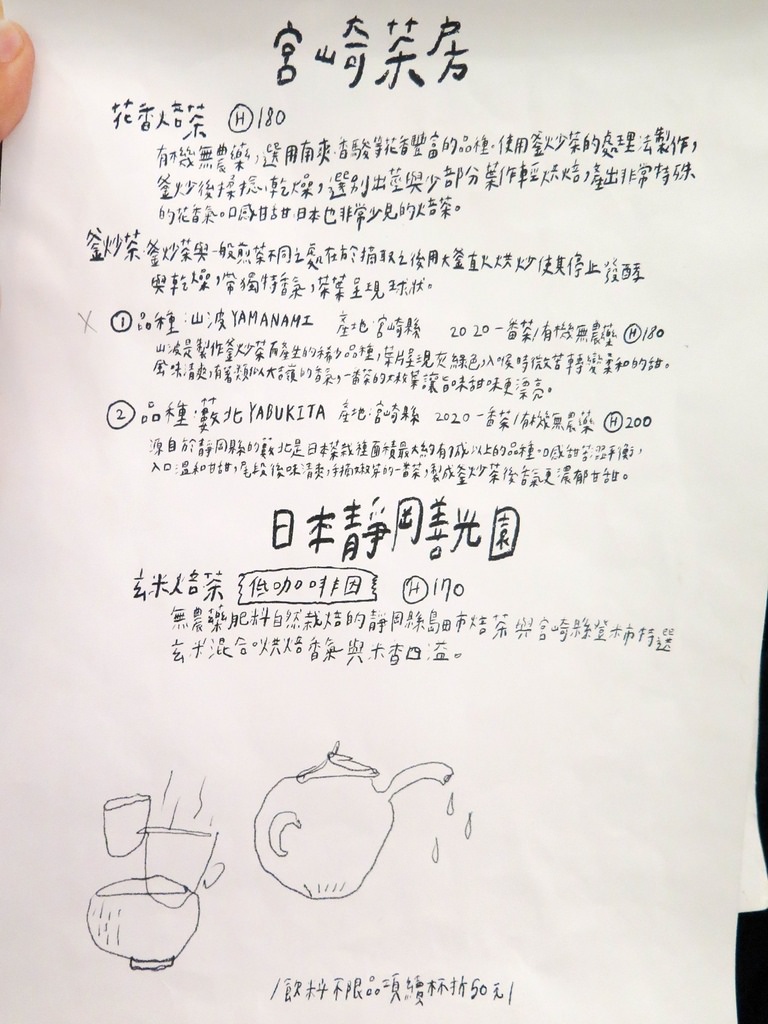 宮崎茶房
花香焙茶 Ⓗ180
有機無農藥,選用南爽、香駿等花香豐富的品種。使用釜炒茶的處理法製作,
釜炒後揉捻、乾燥,選別出莖與少部分葉作輕烘焙,產出非常特殊
的花香氣。口感甘甜日本也非常少見的焙茶。
釜炒茶:釜炒茶與一般煎茶不同之處在於摘取之後用大釜直火烘炒使其停止發酵
與乾燥,帶獨特香氣,茶葉呈現球狀。
X ① 品種:山波YAMANAMI 產地:宮崎縣 2020一番茶/有機無農藥 Ⓗ180
山波是製作釜炒茶有產生的稀少品種,茶片呈現灰綠色,入喉時微苦轉變柔和的甜。
風味清爽,有著類似大吉嶺的香氣,一番茶的大枚葉讓旨味甜味更漂亮。
② 品種:藪北YABUKITA 產地:宮崎縣 2020一番茶/有機無農藥 Ⓗ200
源自於靜岡縣的藪北是日本茶栽種面積最大約有7成以上的品種。口感甜苦澀平衡,
入口溫和甘甜,尾段後味清爽,手摘椒茶的一番茶,製成釜炒茶後香氣更濃郁甘甜。
日本靜岡善光園
玄米焙茶 低咖啡因 Ⓗ170
無農藥肥料自然栽培的靜岡縣島田市焙茶與宮崎縣登柿特選
玄米混合。烘焙香氣與米香四溢。
/飲料不限品項續杯折50元/